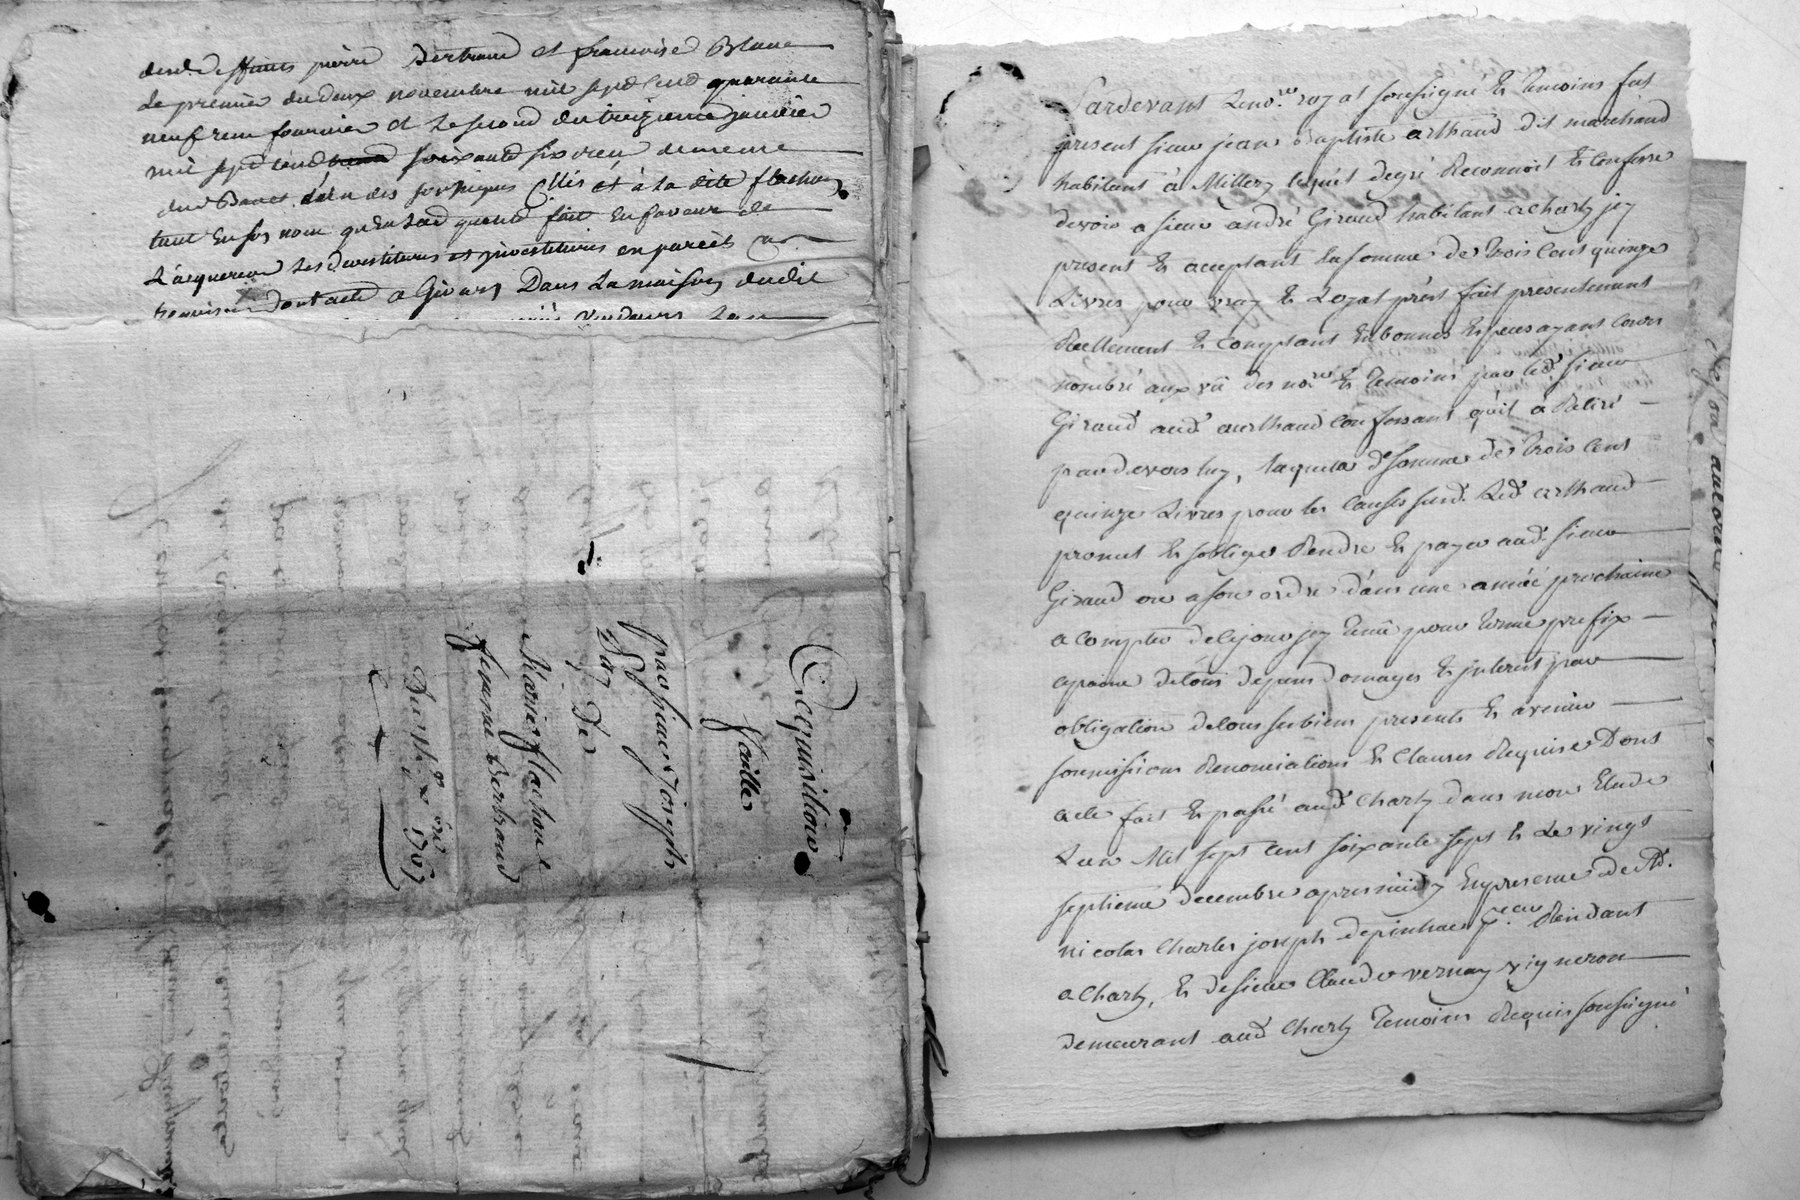 deffunts pierre Bertrand et francoise Blanc
Le premier du deux novembre mil sept cent quarante
neuf reçu fournier et Le second du treizieme janvier
mil sept cend soixante six reçu
des soussignes et à la dite flachon
tant en son nom qu'en lad qualité fait en faveur de
L'acquereur Les devestitures et jnvestitures en pareils
Dont acte a Givors Dans La maison dudit
Acquisition
faille
par sieur Joseph
De
Marie flachon
femme Bertrand
Du 1767
Pardevant Le no.re royal soussigné Et Temoins fut
present sieur jean Baptiste arthaud dit marchand
habitant à Millery lequel degré Reconnoit Et confesse
devoir a sieur andré Giraud habitant a Charly jcy
present Et acceptant la somme de trois Cent quinze
Livres pour vray Et Loyal prest fait presentement
Reellement Et Comptant En bonnes Especes ayant cours
nombré aux vû des no.res Et Temoins par led. sieur
Giraud aud. arthaud confessant qu'il à Retiré
pardevers luy, laquelle d. somme de trois Cent
quinze Livres pour les causes susd. Led. arthaud
promet Et soblige Rendre Et payer aud. sieur
Giraud ou a son ordre dans une année prochaine
a Compter de Cejour jcy Tenû pour terme prefix
apeine de tous depens domages Et jnterest par
obligation de tous ses biens presents Et avenir
soumissions Renonciations Et Clauses Requises Dont
acte fait Et passé aud. Charly dans mon Etude
L'an Mil sept cent soixante sept Et Le vingt
septieme decembre apres midy En presence de M.
nicolas Charles joseph Residant
a Charly, Et de sieur Claude vernay vigneron
demeurant aud. Charly Temoins Requis soussigné